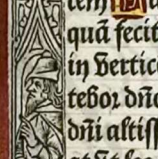 quā fecit
in vertice
tebor dn̄o
dn̄i altiss